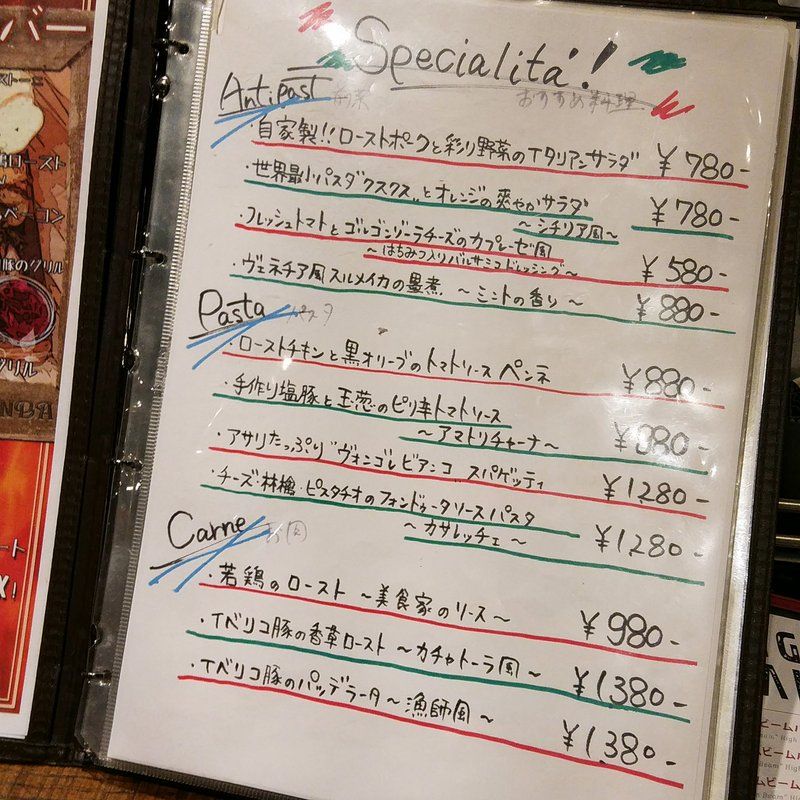 Specialità!
おすすめ料理
Antipast 前菜
・自家製!!ローストポークと彩り野菜のイタリアンサラダ ¥780-
・世界最小パスタ"クスクス"とオレンジの爽やかサラダ
～シチリア風～ ¥780-
・フレッシュトマトとゴルゴンゾーラチーズのカプレーゼ風
～はちみつ入りバルサミコドレッシング～ ¥580-
・ヴェネチア風スルメイカの墨煮 ～ミントの香り～ ¥880-
Pasta パスタ
・ローストチキンと黒オリーブのトマトソース ペンネ ¥880-
・手作り塩豚と玉葱のピリ辛トマトソース
～アマトリチャーナ～ ¥980-
・アサリたっぷり"ヴォンゴレビアンコ" スパゲッティ ¥1280-
・チーズ・林檎・ピスタチオのフォンドゥータソースパスタ
～カサレッチェ～ ¥1280-
Carne お肉
・若鶏のロースト ～美食家のソース～ ¥980-
・イベリコ豚の香草ロースト ～カチャトーラ風～ ¥1380-
・イベリコ豚のパッデラータ ～漁師風～ ¥1380-
バー
ロースト
ベーコン
豚のグリル
グリル